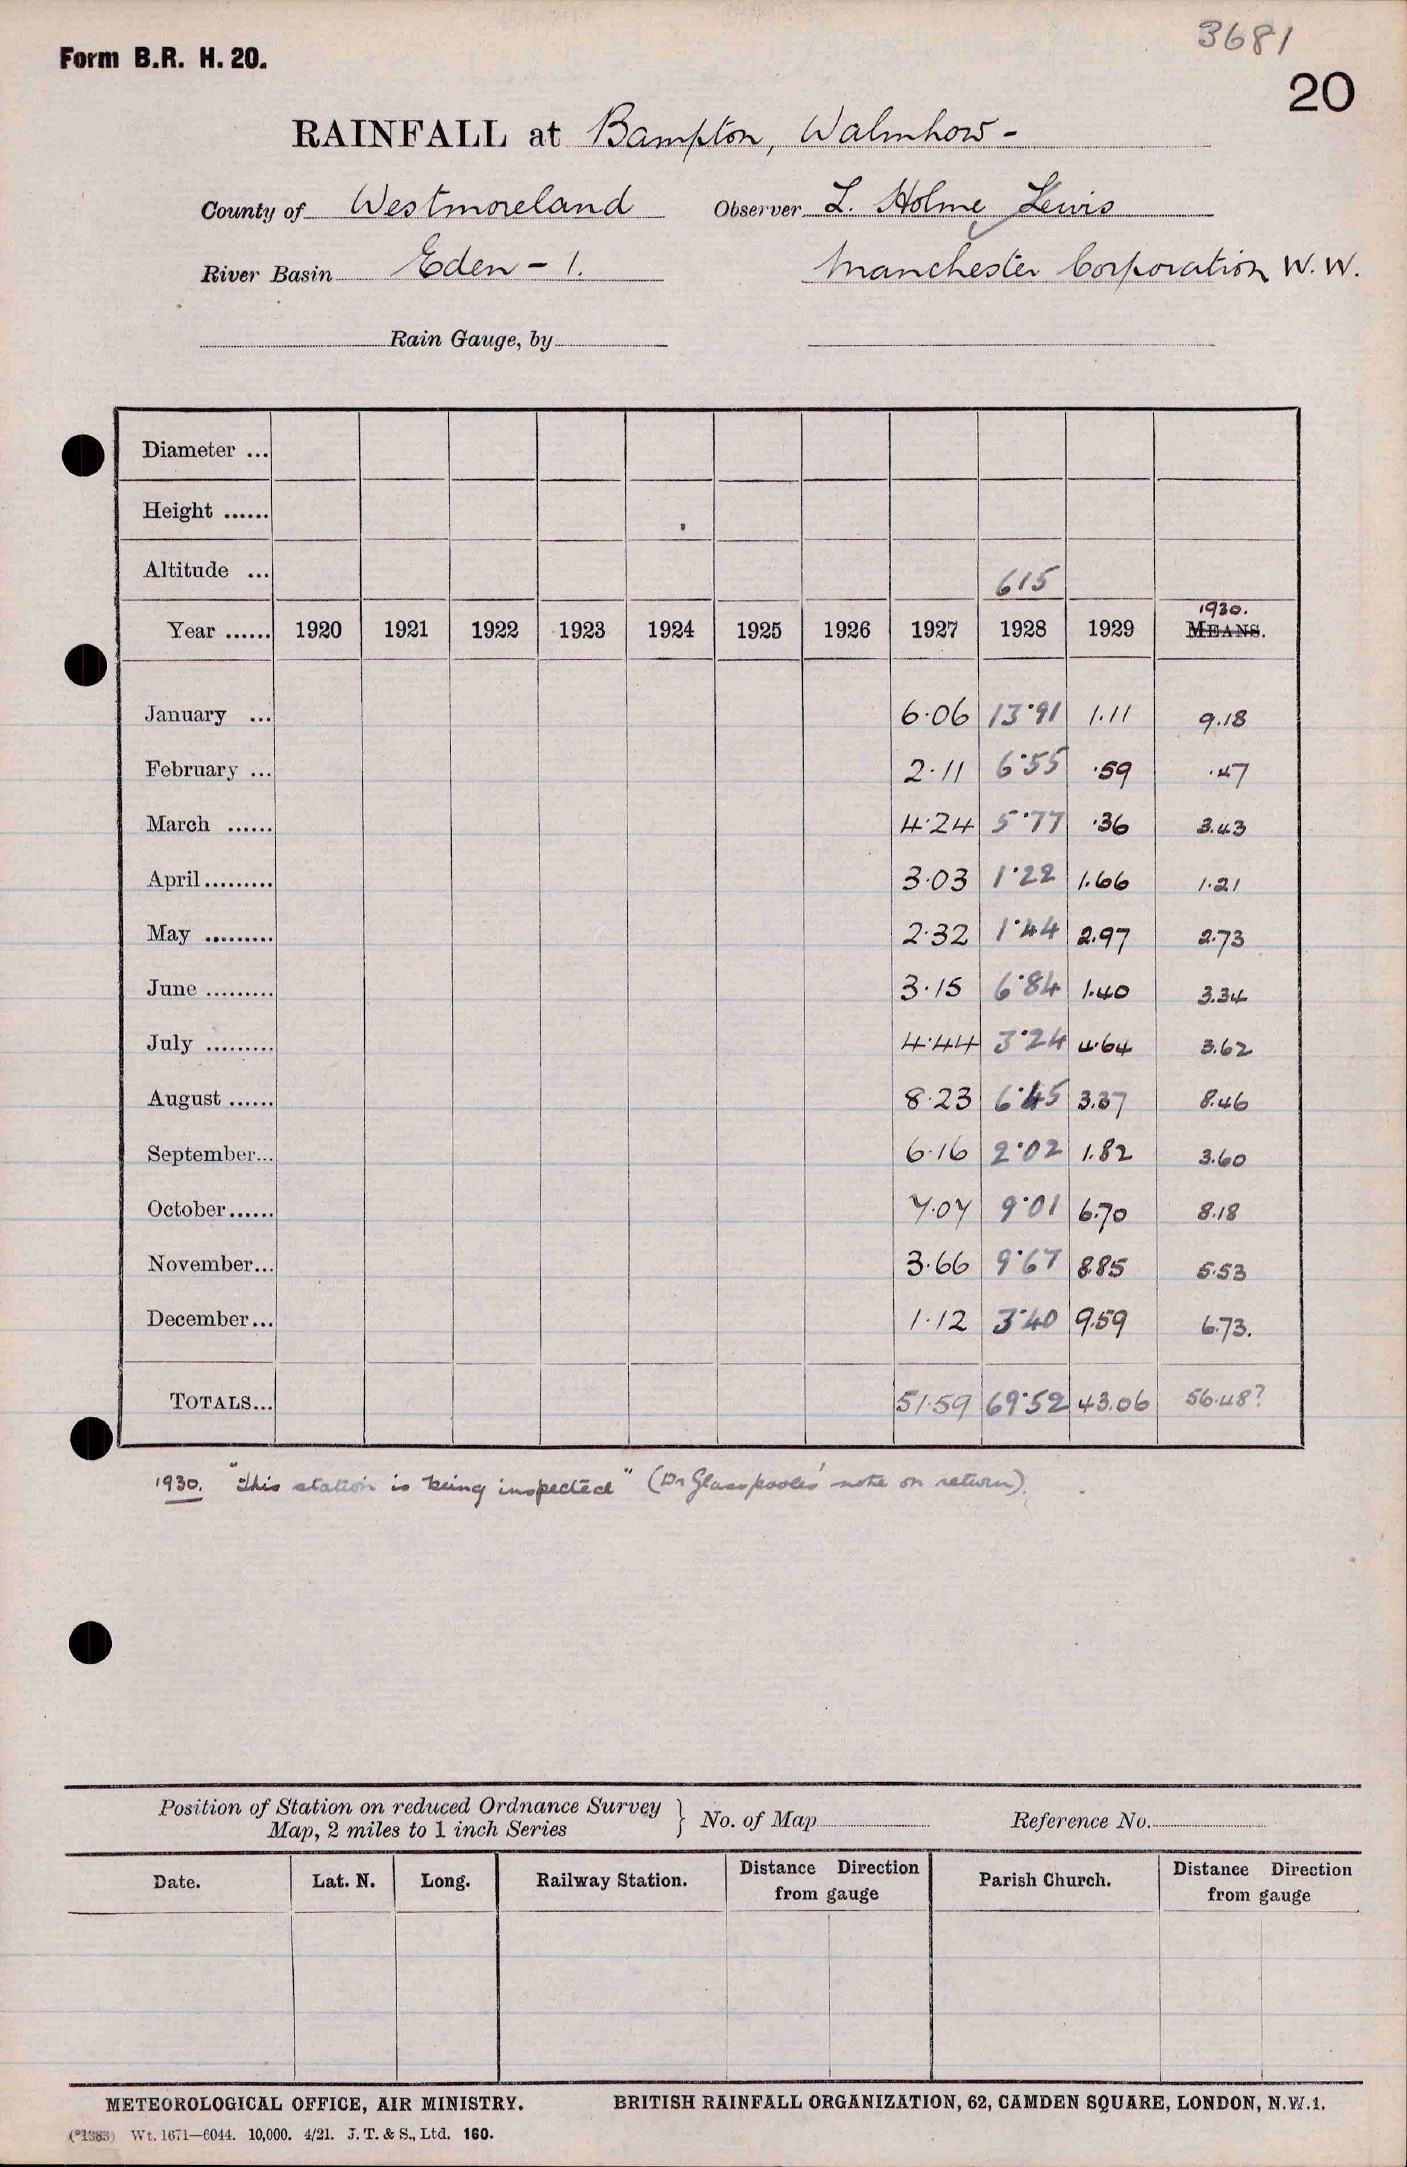 3681
Form B.R. H. 20.
20
RAINFALL at Bampton, Walmhow -
County of Westmoreland Observer L. Holme Lewis
River Basin Eden - 1. Manchester Corporation W.W.
Rain Gauge, by
Diameter ...
Height ......
Altitude ... 615
1930.
Year ...... 1920 1921 1922 1923 1924 1925 1926 1927 1928 1929 MEANS.
January ... 6.06 13.91 1.11 9.18
February ... 2.11 6.55 .59 .47
March ...... 4.24 5.77 .36 3.43
April ......... 3.03 1.22 1.66 1.21
May ......... 2.32 1.44 2.97 2.73
June ......... 3.15 6.84 1.40 3.34
July ......... 4.44 3.24 4.64 3.62
August ...... 8.23 6.45 3.37 8.46
September... 6.16 2.02 1.82 3.60
October ...... 7.07 9.01 6.70 8.18
November... 3.66 9.67 8.85 5.53
December... 1.12 3.40 9.59 6.73.
TOTALS... 51.59 69.52 43.06 56.48?
1930. "This station is being inspected" (Dr Glasspoole's note on return).
Position of Station on reduced Ordnance Survey
Map, 2 miles to 1 inch Series } No. of Map Reference No.
Date. Lat. N. Long. Railway Station. Distance Direction from gauge Parish Church. Distance Direction from gauge
METEOROLOGICAL OFFICE, AIR MINISTRY. BRITISH RAINFALL ORGANIZATION, 62, CAMDEN SQUARE, LONDON, N.W.1.
(*1383) Wt. 1671—6044. 10,000. 4/21. J. T. & S., Ltd. 160.